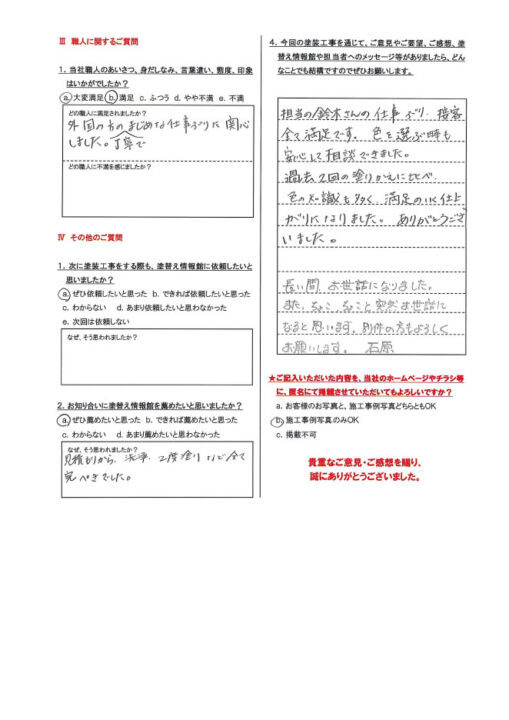 Ⅲ 職人に関するご質問
1. 当社職人のあいさつ、身だしなみ、言葉遣い、態度、印象
はいかがでしたか?
a. 大変満足 b. 満足 c. ふつう d. やや不満 e. 不満
どの職人に満足されましたか?
外国の方のまじめな仕事ぶりに関心
しました。丁寧で
どの職人に不満を感じましたか?
Ⅳ その他のご質問
1. 次に塗装工事をする際も、塗替え情報館に依頼したいと
思いましたか?
a. ぜひ依頼したいと思った b. できれば依頼したいと思った
c. わからない d. あまり依頼したいと思わなかった
e. 次回は依頼しない
なぜ、そう思われましたか?
2. お知り合いに塗替え情報館を薦めたいと思いましたか?
a. ぜひ薦めたいと思った b. できれば薦めたいと思った
c. わからない d. あまり薦めたいと思わなかった
なぜ、そう思われましたか?
見積もりから、洗浄、2度塗りなど全て
完ぺきでした。
4. 今回の塗装工事を通じて、ご意見やご要望、ご感想、塗
替え情報館や担当者へのメッセージ等がありましたら、どん
なことでも結構ですのでぜひお願いします。
担当の鈴木さんの仕事ぶり、接客
全て満足です。色を選ぶ時も
安心して相談できました。
過去2回の塗りかえに比べ、
色の知識も多く、満足のいく仕上
がりになりました。ありがとうござ
いました。
長い間、お世話になりました。
また、ちょこちょこと突然お世話に
なると思います。別件の方もよろしく
お願いします。 石原
★ご記入いただいた内容を、当社のホームページやチラシ等
に、匿名にて掲載させていただいてもよろしいですか?
a. お客様のお写真と、施工事例写真どちらともOK
b. 施工事例写真のみOK
c. 掲載不可
貴重なご意見・ご感想を賜り、
誠にありがとうございました。